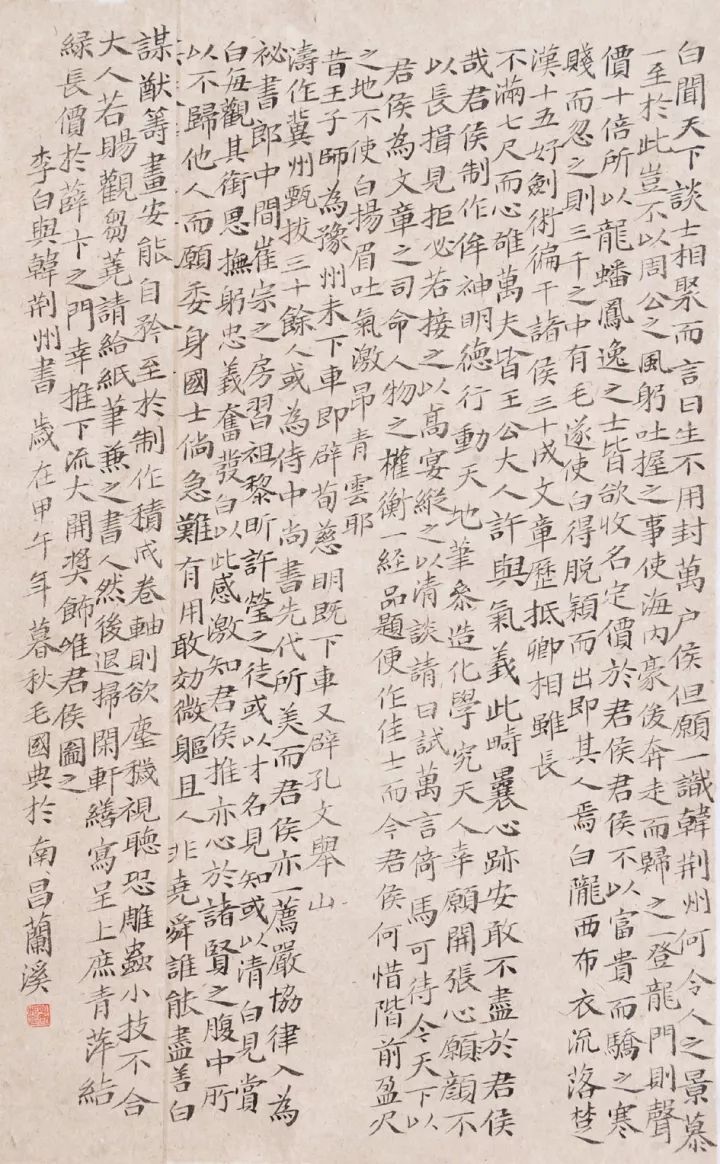 白聞天下談士相聚而言曰生不用封萬户侯但願一識韓荆州何令人之景慕
一至於此豈不以周公之風躬吐握之事使海内豪後奔走而歸之一登龍門則聲
價十倍所以龍蟠鳳逸之士皆欲收名定價於君侯君侯不以富貴而驕之寒
賤而忽之則三千之中有毛遂使白得脫穎而出即其人焉白隴西布衣流落楚
漢十五好劍術徧干諸侯三十成文章歷抵卿相雖長
不滿七尺而心雄萬夫皆王公大人許與氣義此疇曩心跡安敢不盡於君侯
哉君侯制作侔神明德行動天地筆叅造化學究天人幸願開張心願顔不
以長揖見拒必若接之以高宴縱之以清談請日試萬言倚馬可待今天下以
君侯為文章之司命人物之權衡一経品題便作佳士而今君侯何惜階前盈尺
之地不使白揚眉吐氣激昂青雲耶
昔王子師為豫州未下車即辟荀慈明既下車又辟孔文舉山
濤作冀州甄拔三十餘人或為侍中尚書先代所美而君侯亦一薦嚴協律入為
祕書郎中間崔宗之房習祖黎昕許瑩之徒或以才名見知或以清白見賞
白每觀其銜恩撫躬忠義奮發白以此感激知君侯推亦心於諸賢之腹中所
以不歸他人而願委身國士倘急難有用敢効微軀且人非堯舜誰能盡善白
謀猷籌畫安能自矜至於制作積成卷軸則欲塵穢視聽恐雕蟲小技不合
大人若賜觀芻蕘請給紙筆兼之書人然後退掃閑軒繕寫呈上庶青萍結
緑長價於薛卞之門幸推下流大開獎飾唯君侯圖之
李白與韓荆州書 歲在甲午年暮秋毛國典於南昌蘭溪